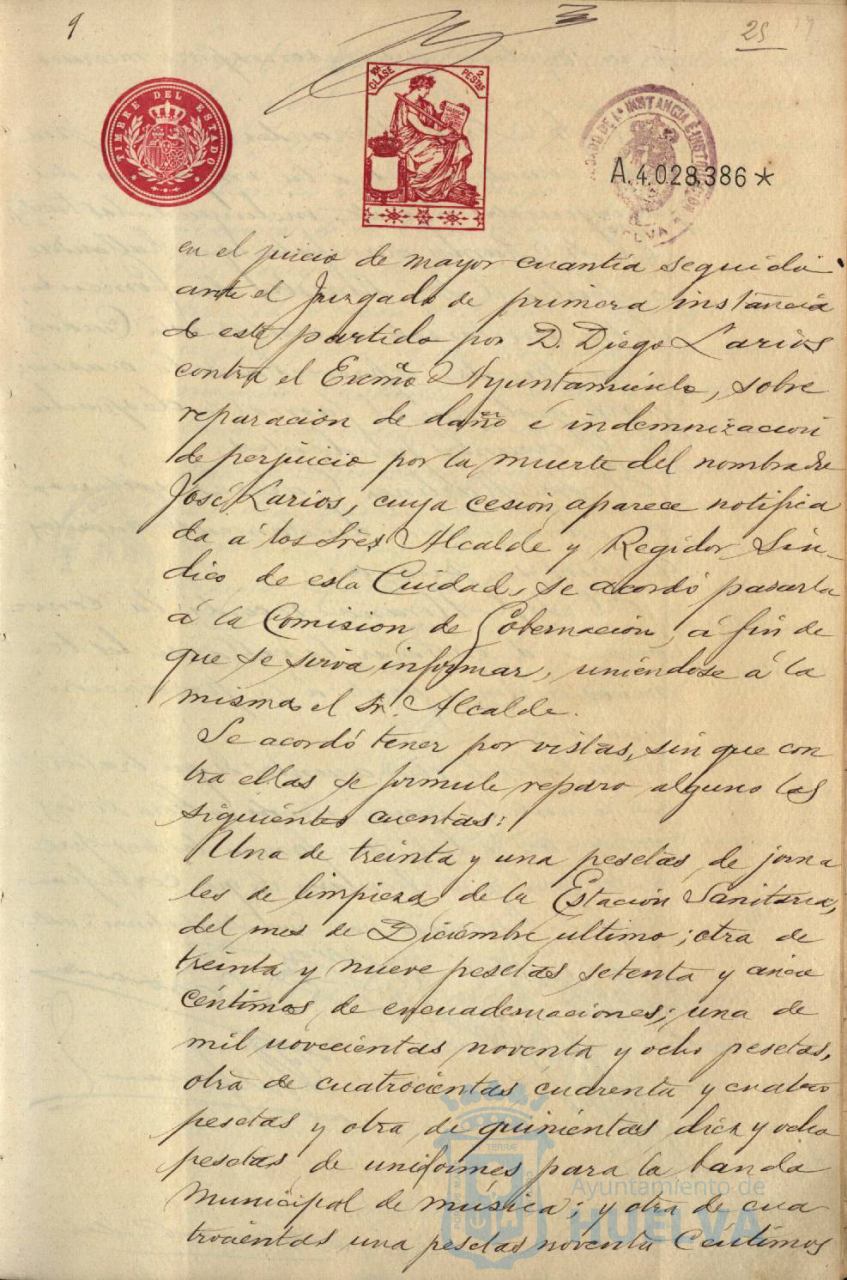 9
25
TIMBRE DEL ESTADO
10ª CLASE 2 PESTAS
JUZGADO DE 1ª INSTANCIA É INSTRUCCION
HUELVA
A.4.028,386*
en el juicio de mayor cuantía seguido
ante el Juzgado de primera instancia
de este partido por D. Diego Larios
contra el Excmõ Ayuntamiento, sobre
reparación de daño é indemnización
de perjuicio por la muerte del nombrado
José Larios, cuya cesión aparece notifica
da á los Sres Alcalde y Regidor Sín-
dico de esta Ciudad, se acordó pasarla
á la Comision de Gobernación, á fin de
que se sirva informar, uniéndose á la
misma el Sr. Alcalde.
Se acordó tener por vistas, sin que con
tra ellas se formule reparo alguno las
siguientes cuentas:
Una de treinta y una pesetas, de jorna
les de limpieza de la Estación Sanitaria,
del mes de Diciembre ultimo; otra de
treinta y nueve pesetas setenta y cinco
céntimos de encuadernaciones; una de
mil novecientas noventa y ocho pesetas,
otra de cuatrocientas cuarenta y cuatro
pesetas y otra de quinientas diez y ocho
pesetas de uniformes para la banda
Municipal de música; y otra de cua
trocientas una pesetas noventa Centimos
Ayuntamiento de
HUELVA